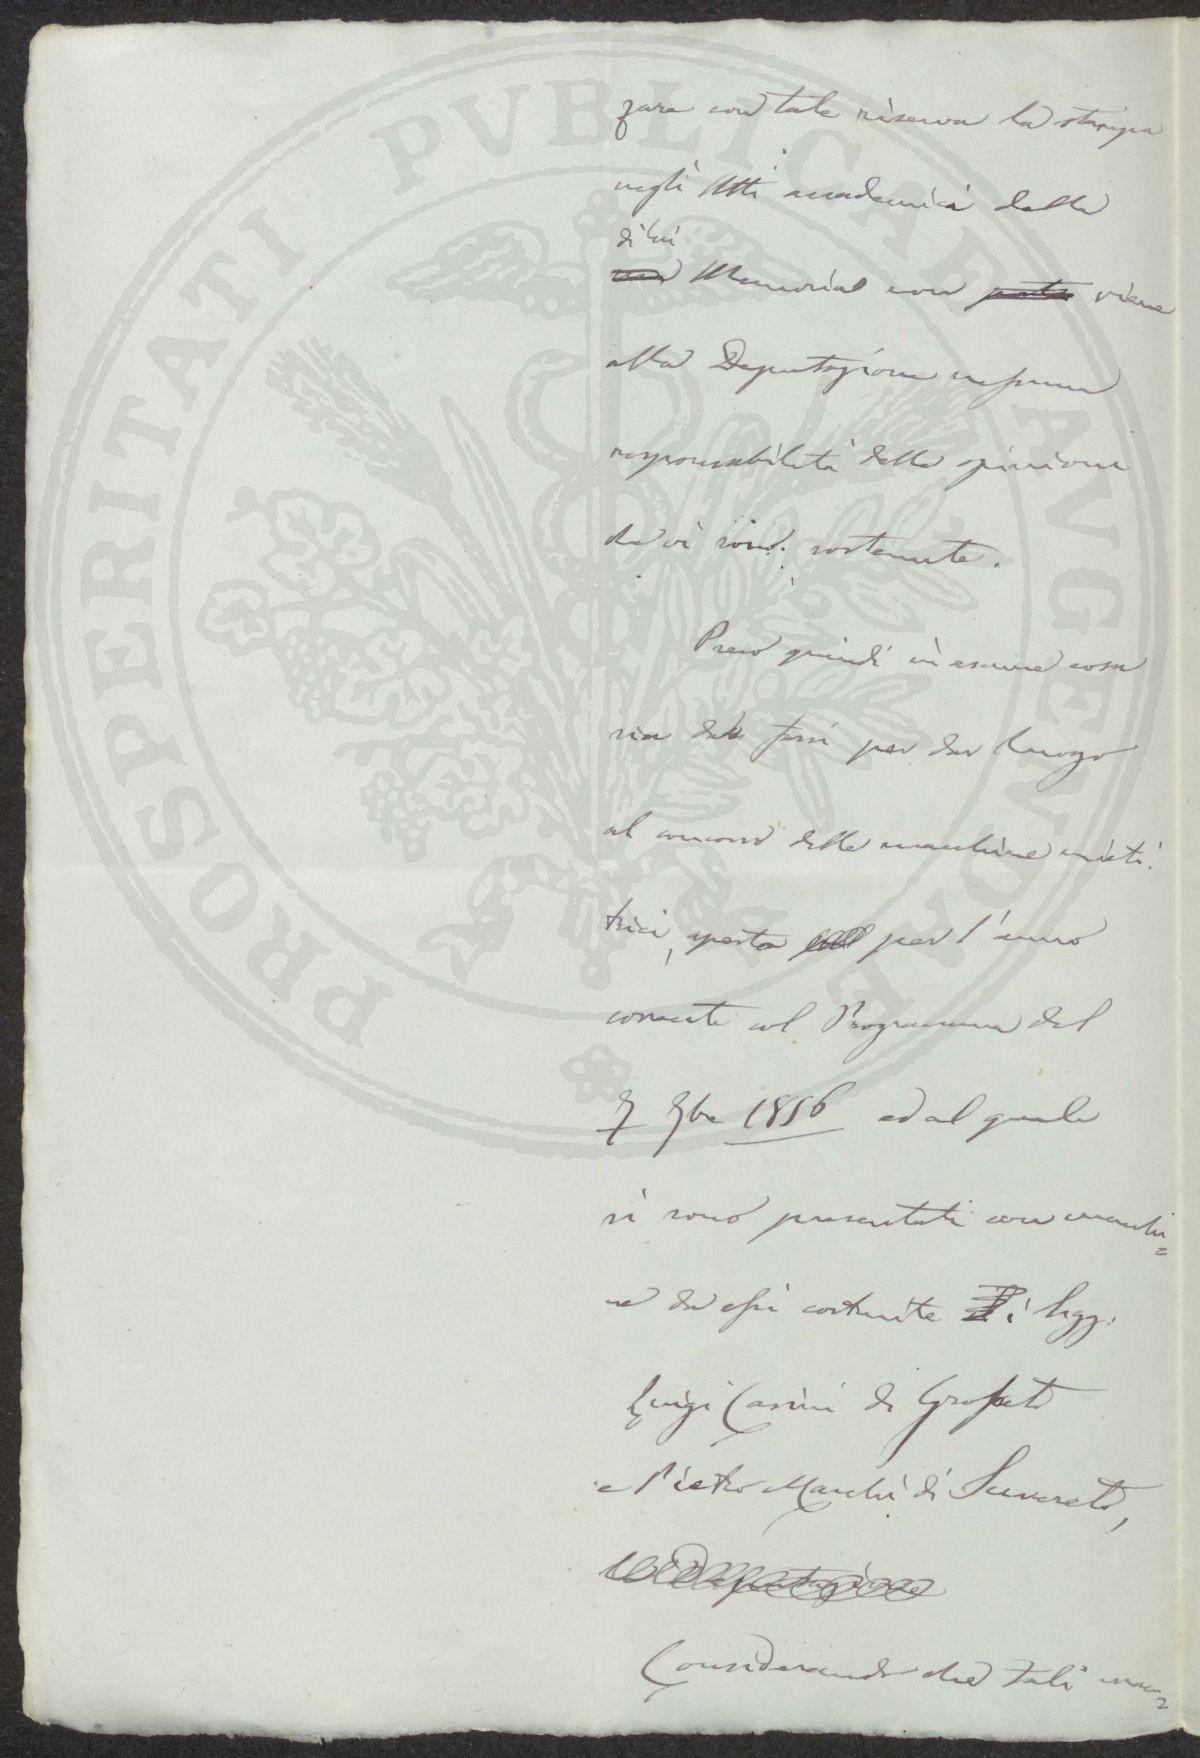 PROSPERITATI PVBLICAE AVGENDAE
zare con tale riserva la stampa
negli Atti accademici della
di lui
Memoria non viene
alla Deputazione nessuna
responsabilità delle opinioni
che vi sono sostenute.
Preso quindi in esame cosa
sia da farsi per dar luogo
al concorso delle macchine mieti
trici, aperto per l'anno
corrente col Programma del
7 7bre 1856 ed al quale
si sono presentati con macchi=
ne da essi costruite i Sigg:
Luigi Casini di Grosseto
e Pietro Marchi di Suvereto,
la Deputazione
Considerando che tali mac=